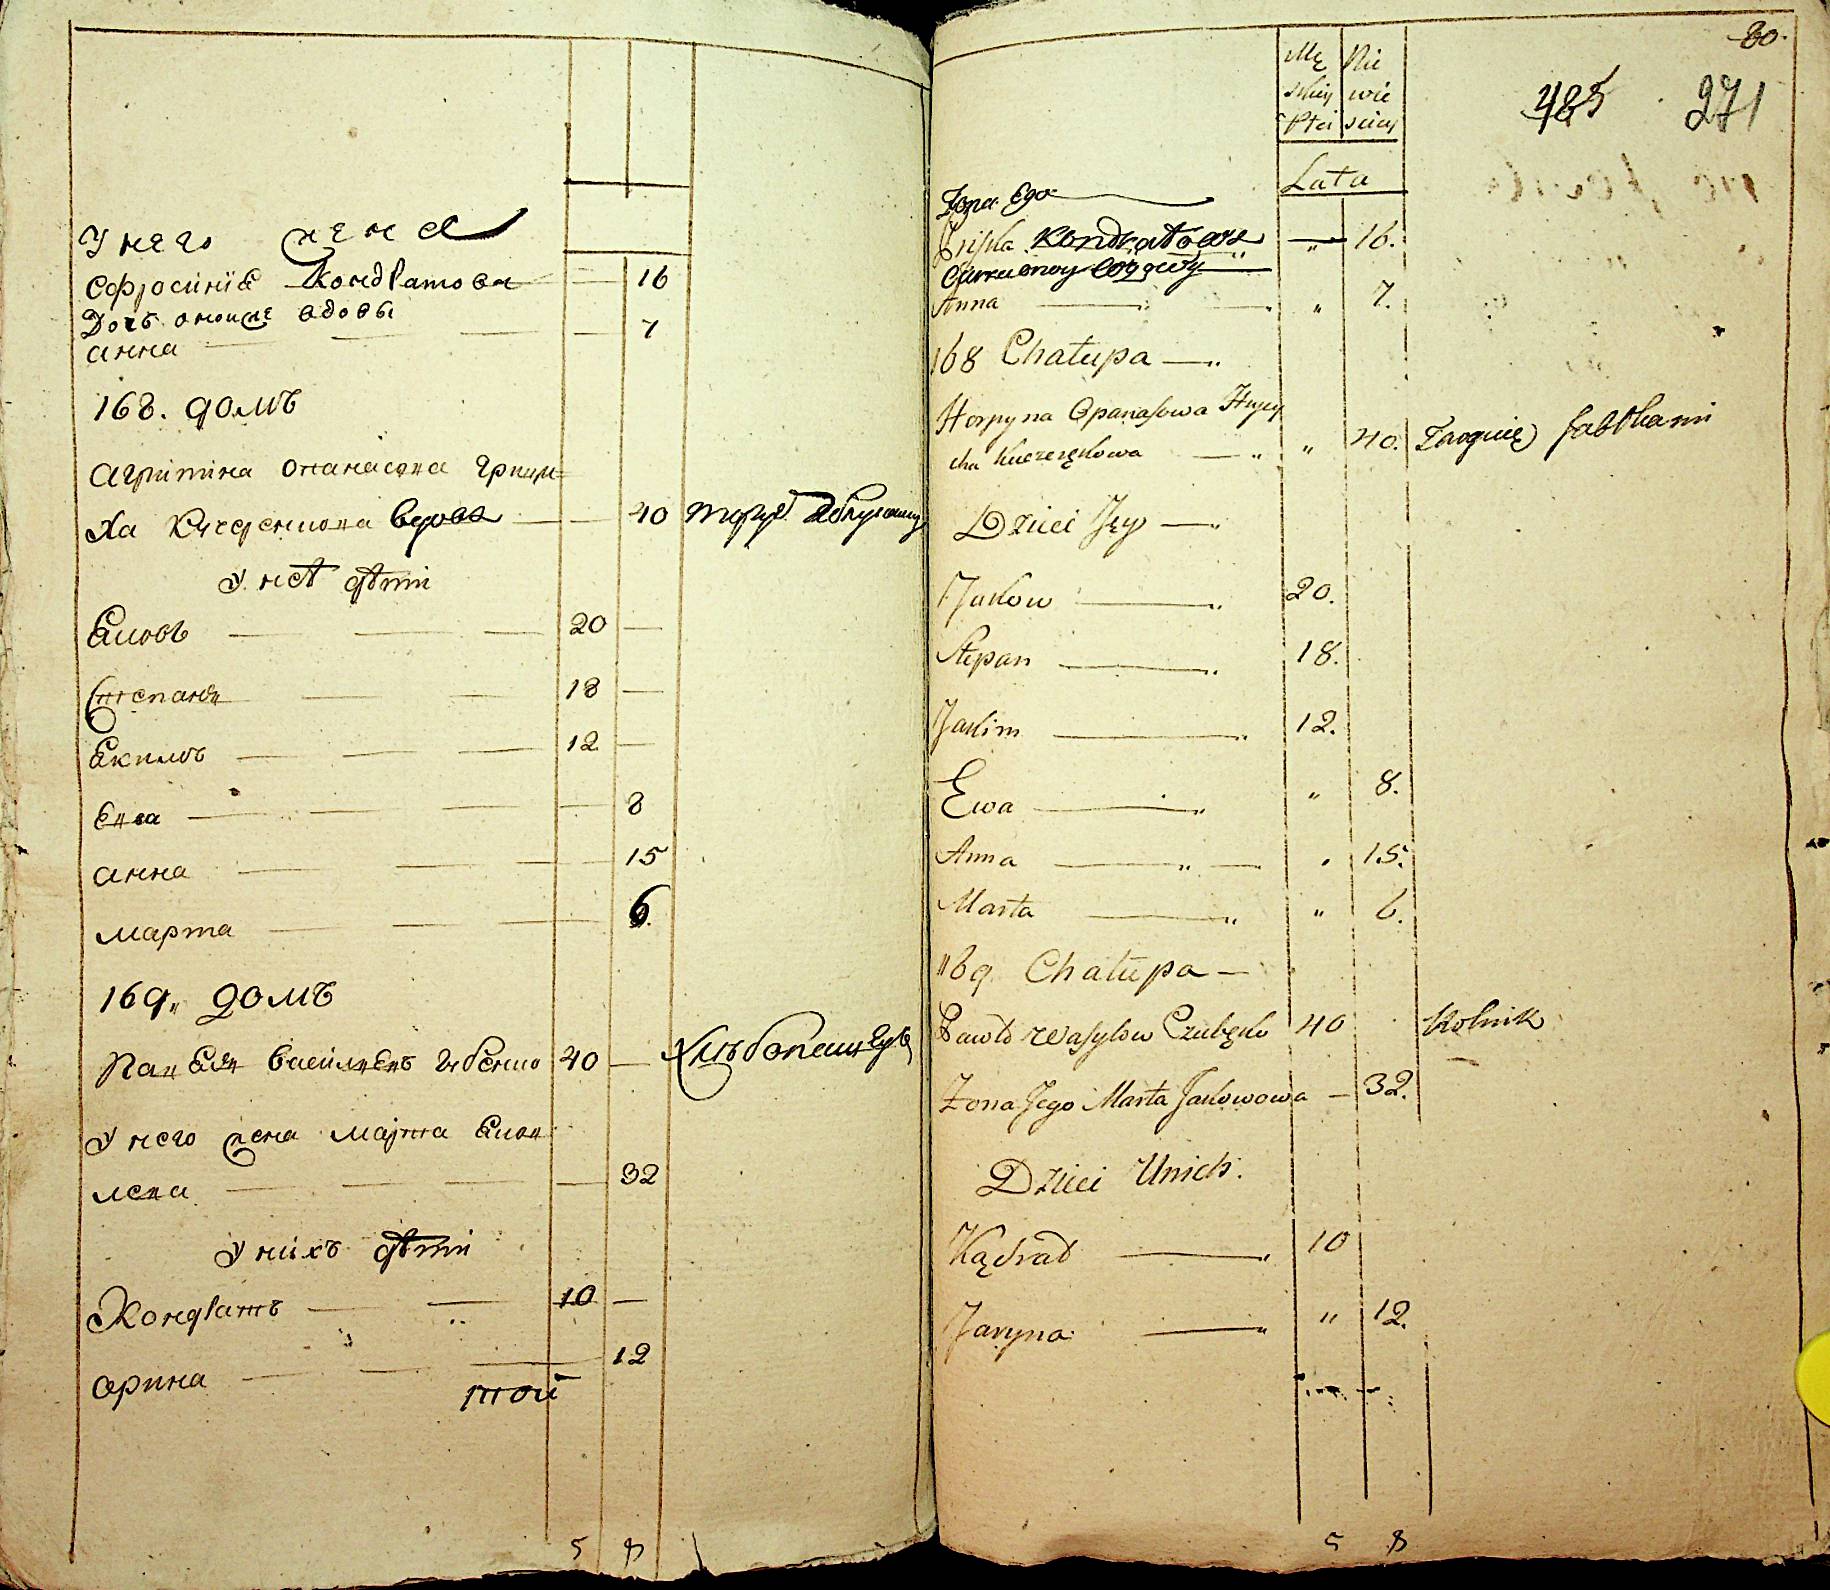 У него жена
Ефросиніѧ Кондратова — 16
Дочь оноиже вдовы
анна — — — 7
168. домъ
агрипина опанасова грици
ха Кучеренкова вдова — — 40
торуе яблуками
У неѣ дѣти
Яковъ — — — 20 —
Степанъ — — 18 —
Якимъ — — — 12 —
Евва — — — — 8
анна — — — — 15
марта — — — 6.
169. домъ
Павелъ Васильевъ Зубенко 40 —
Хлѣбопашецъ
У него жена марта Яков
лева — — — — 32
У нихъ дѣти
Кондратъ — — 10 —
орина — — — 12
той
5 8
80.
485 271
Mę Nie
skiey wie
Płci sciey
Lata
Żona Ego
Pryśka Кондратова „ 16.
Anna — „ 7.
168 Chałupa —
Horpyna Opanasowa Hrycy
cha Kuczerękowa — „ 40. Targuię Jabłkami
Dzieci Jey —
Jakow — 20.
Stepan — 18.
Jakim — 12.
Ewa — „ 8.
Anna — „ 15.
Marta — „ 6.
169 Chałupa —
Pawło Wasylow Czubęko 40 Rolnik
Żona Jego Marta Jakowowa — 32.
Dzieci Unich.
Kądrad — 10
Jaryna — „ 12.
5 8